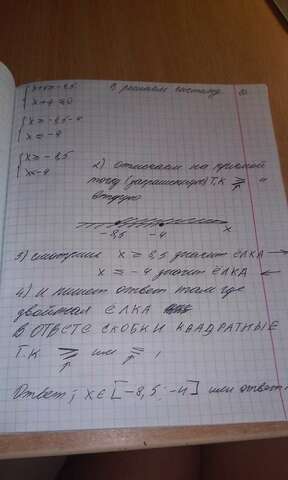 { x+4 ≥ -8,5
{ x+4 ≤ 0
1) решаем систему
{ x ≥ -8,5-4
{ x ≤ -4
{ x ≥ -8,5
{ x ≤ -4
2) отмечаем на прямой
точу (закрашенную) т.к ≥ и
вторую
-8,5 -4 x
3) смотрим x ≥ 8,5 значит ёлка →
x ≤ -4 значит ёлка ←
4) и пишет ответ там где
двойная ёлка
В ОТВЕТЕ СКОБКИ КВАДРАТНЫЕ
Т.К ≥ или ≤ ,
Ответ; x ∈ [-8,5; -4] или ответ: